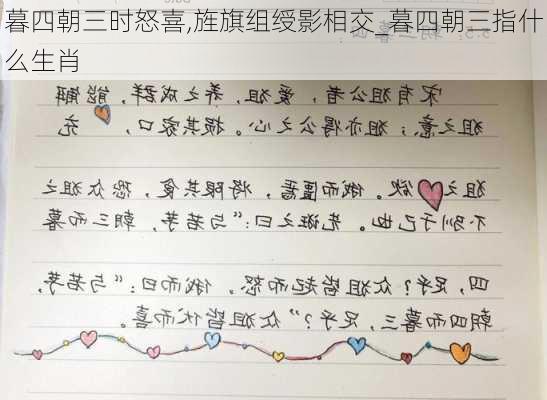 暮四朝三时怒喜,旌旗组绶影相交_暮四朝三指什
么生肖
宋有狙公者，爱狙，养之成群，能解
狙之意；狙亦得公之心。损其家口，充
狙之欲。俄而匮焉，将限其食，恐众狙之
不驯于己也。先诳之曰：“与若芧，朝三而暮
四，足乎？众狙皆起而怒。俄而曰：“与若芧，
朝四而暮三，足乎？”众狙皆伏而喜。